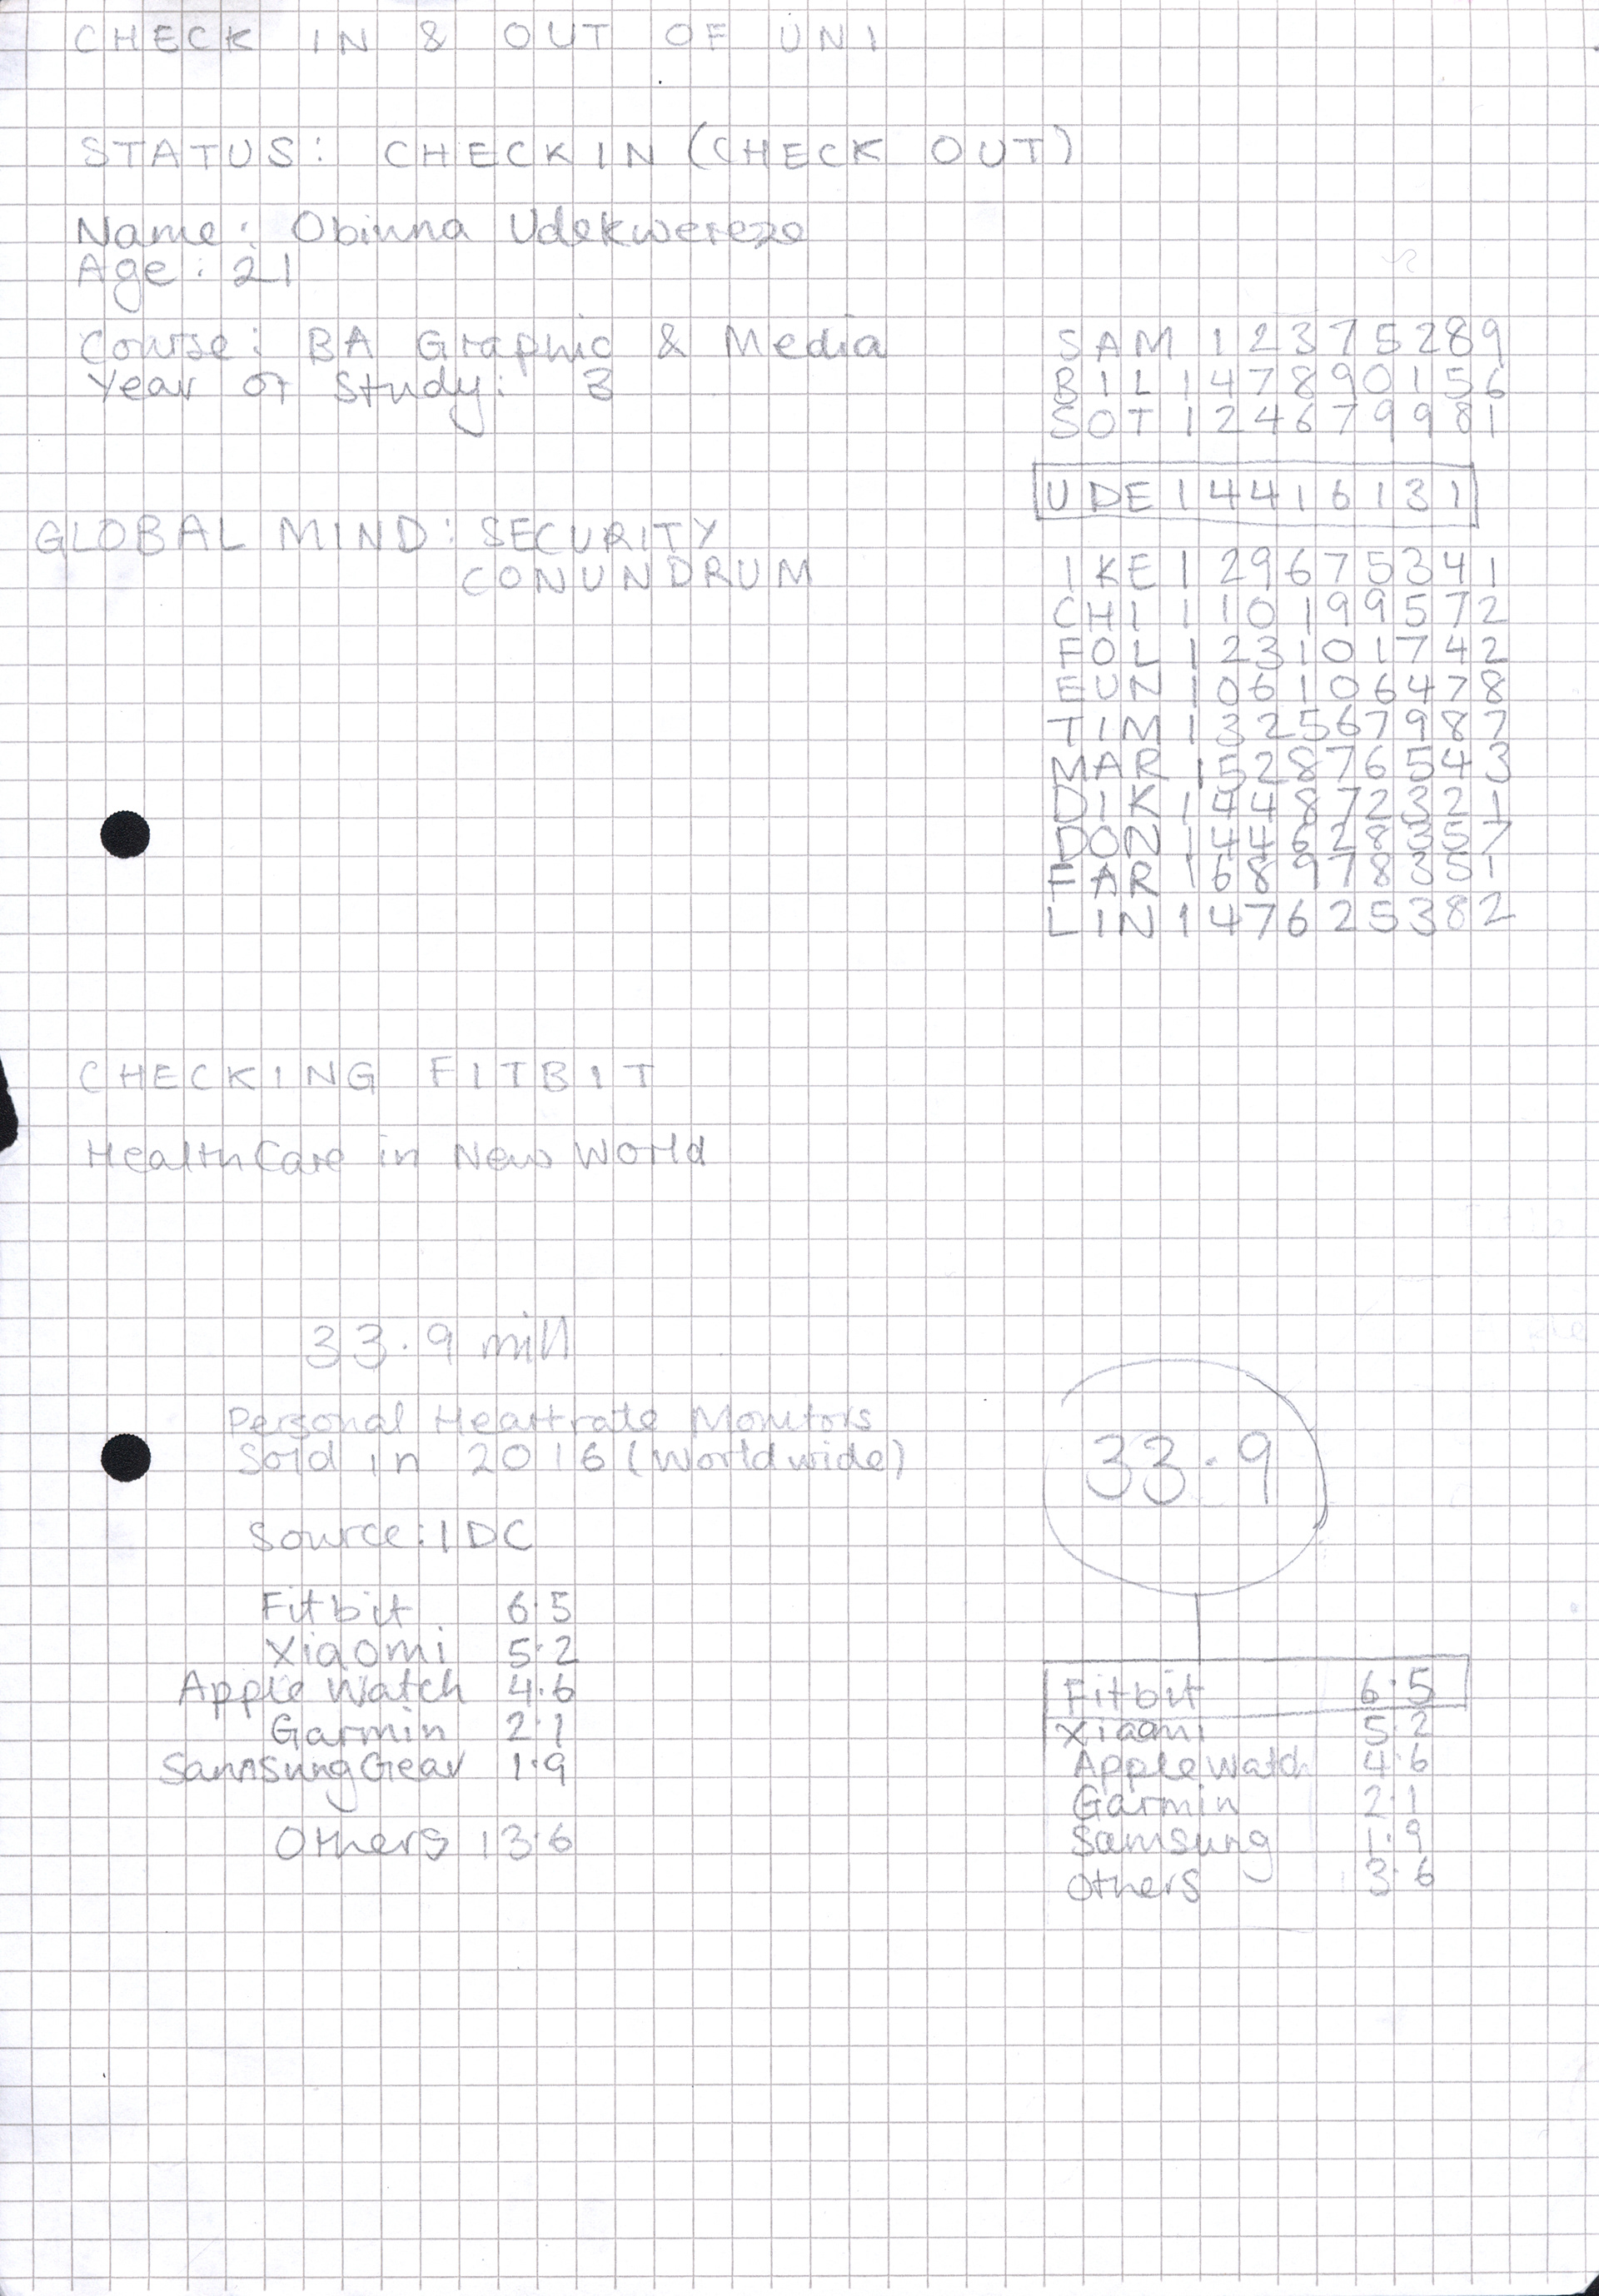 CHECK IN & OUT OF UNI
STATUS: CHECK IN (CHECK OUT)
Name: Obinna Udekwereze
Age: 21
Course: BA Graphic & Media
Year of Study: 3
SAM 12375289
BIL 147890156
SOT 124679981
UDE 14416131
GLOBAL MIND: SECURITY
CONUNDRUM
IKE 129675341
CHI 110199572
FOL 123101742
EUN 106106478
TIM 132567987
MAR 152876543
DIK 144872321
DON 144628357
FAR 168978351
LIN 147625382
CHECKING FITBIT
HealthCare in New World
33.9 mill
Personal Heartrate Monitors
Sold in 2016 (Worldwide)
Source: IDC
Fitbit 6.5
Xiaomi 5.2
Apple Watch 4.6
Garmin 2.1
Samsung Gear 1.9
Others 13.6
33.9
Fitbit 6.5
Xiaomi 5.2
Apple Watch 4.6
Garmin 2.1
Samsung 1.9
Others 3.6